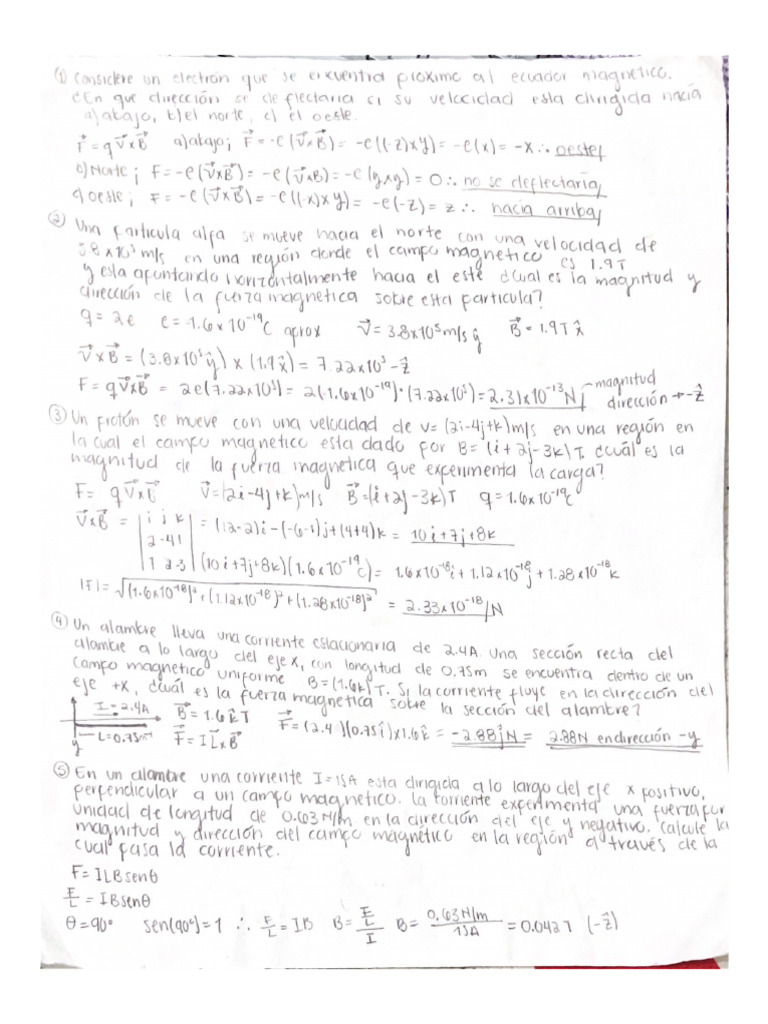 ① Considere un electrón que se encuentra próximo al ecuador magnetico.
¿En que dirección se deflectaria si su velocidad esta dirigida hacia
a) abajo, b) el norte, c) el oeste.
F⃗ = qV⃗xB⃗   a) abajo; F⃗ = -e(V⃗xB⃗) = -e((-z)xy) = -e(x) = -x ∴ oeste
b) Norte; F = -e(V⃗xB⃗) = -e(V⃗xB⃗) = -e(yxy) = 0 ∴ no se deflectaria
c) oeste; F = -e(V⃗xB⃗) = -e((-x)xy) = -e(-z) = z ∴ hacia arriba
② Una particula alfa se mueve hacia el norte con una velocidad de
3.8x10⁵ m/s en una región donde el campo magnetico es 1.9T
y esta apuntando horizontalmente hacia el este ¿Cual es la magnitud y
dirección de la fuerza magnetica sobre esta particula?
q = 2e   e = -1.6x10⁻¹⁹C aprox   V⃗ = 3.8x10⁵ m/s ŷ   B⃗ = 1.9T x̂
V⃗xB⃗ = (3.8x10⁵ŷ) x (1.9x̂) = 7.22x10⁵ -ẑ
F = qV⃗xB⃗ = 2e(7.22x10⁵) = 2(-1.6x10⁻¹⁹)·(7.22x10⁵) = 2.31x10⁻¹³N magnitud
dirección → -ẑ
③ Un protón se mueve con una velocidad de v = (2i-4j+k)m/s en una región en
la cual el campo magnetico esta dado por B = (i+2j-3k)T. ¿cuál es la
magnitud de la fuerza magnetica que experimenta la carga?
F = qV⃗xB⃗   V⃗ = (2i-4j+k)m/s   B⃗ = (i+2j-3k)T   q = 1.6x10⁻¹⁹C
V⃗xB⃗ = | i j k | = (12-2)i-(-6-1)j+(4+4)k = 10i+7j+8k
2 -4 1
1 2 -3 (10i+7j+8k)(1.6x10⁻¹⁹C) = 1.6x10⁻¹⁸i + 1.12x10⁻¹⁸j + 1.28x10⁻¹⁸k
|F| = √(1.6x10⁻¹⁸)²+(1.12x10⁻¹⁸)²+(1.28x10⁻¹⁸)² = 2.33x10⁻¹⁸N
④ Un alambre lleva una corriente estacionaria de 2.4A una sección recta del
alambre a lo largo del eje x, con longitud de 0.75m se encuentra dentro de un
campo magnetico uniforme B = (1.6k)T. Si la corriente fluye en la dirección del
eje +x, ¿cuál es la fuerza magnetica sobre la sección del alambre?
I = 2.4A   B⃗ = 1.6k̂T   F⃗ = (2.4)(0.75î)x1.6k̂ = -2.88ĵN = 2.88N en dirección -y
L = 0.75m   F⃗ = IL⃗xB⃗
y
⑤ En un alambre una corriente I = 15A esta dirigida a lo largo del eje x positivo,
perpendicular a un campo magnetico. La corriente experimenta una fuerza por
unidad de longitud de 0.63 N/m en la dirección del eje y negativo. Calcule la
magnitud y dirección del campo magnético en la región a través de la
cual pasa la corriente.
F = ILBsenθ
F/L = IBsenθ
θ = 90°   sen(90°) = 1 ∴ F/L = IB   B = (F/L)/I   B = (0.63N/m)/15A = 0.042T (-ẑ)